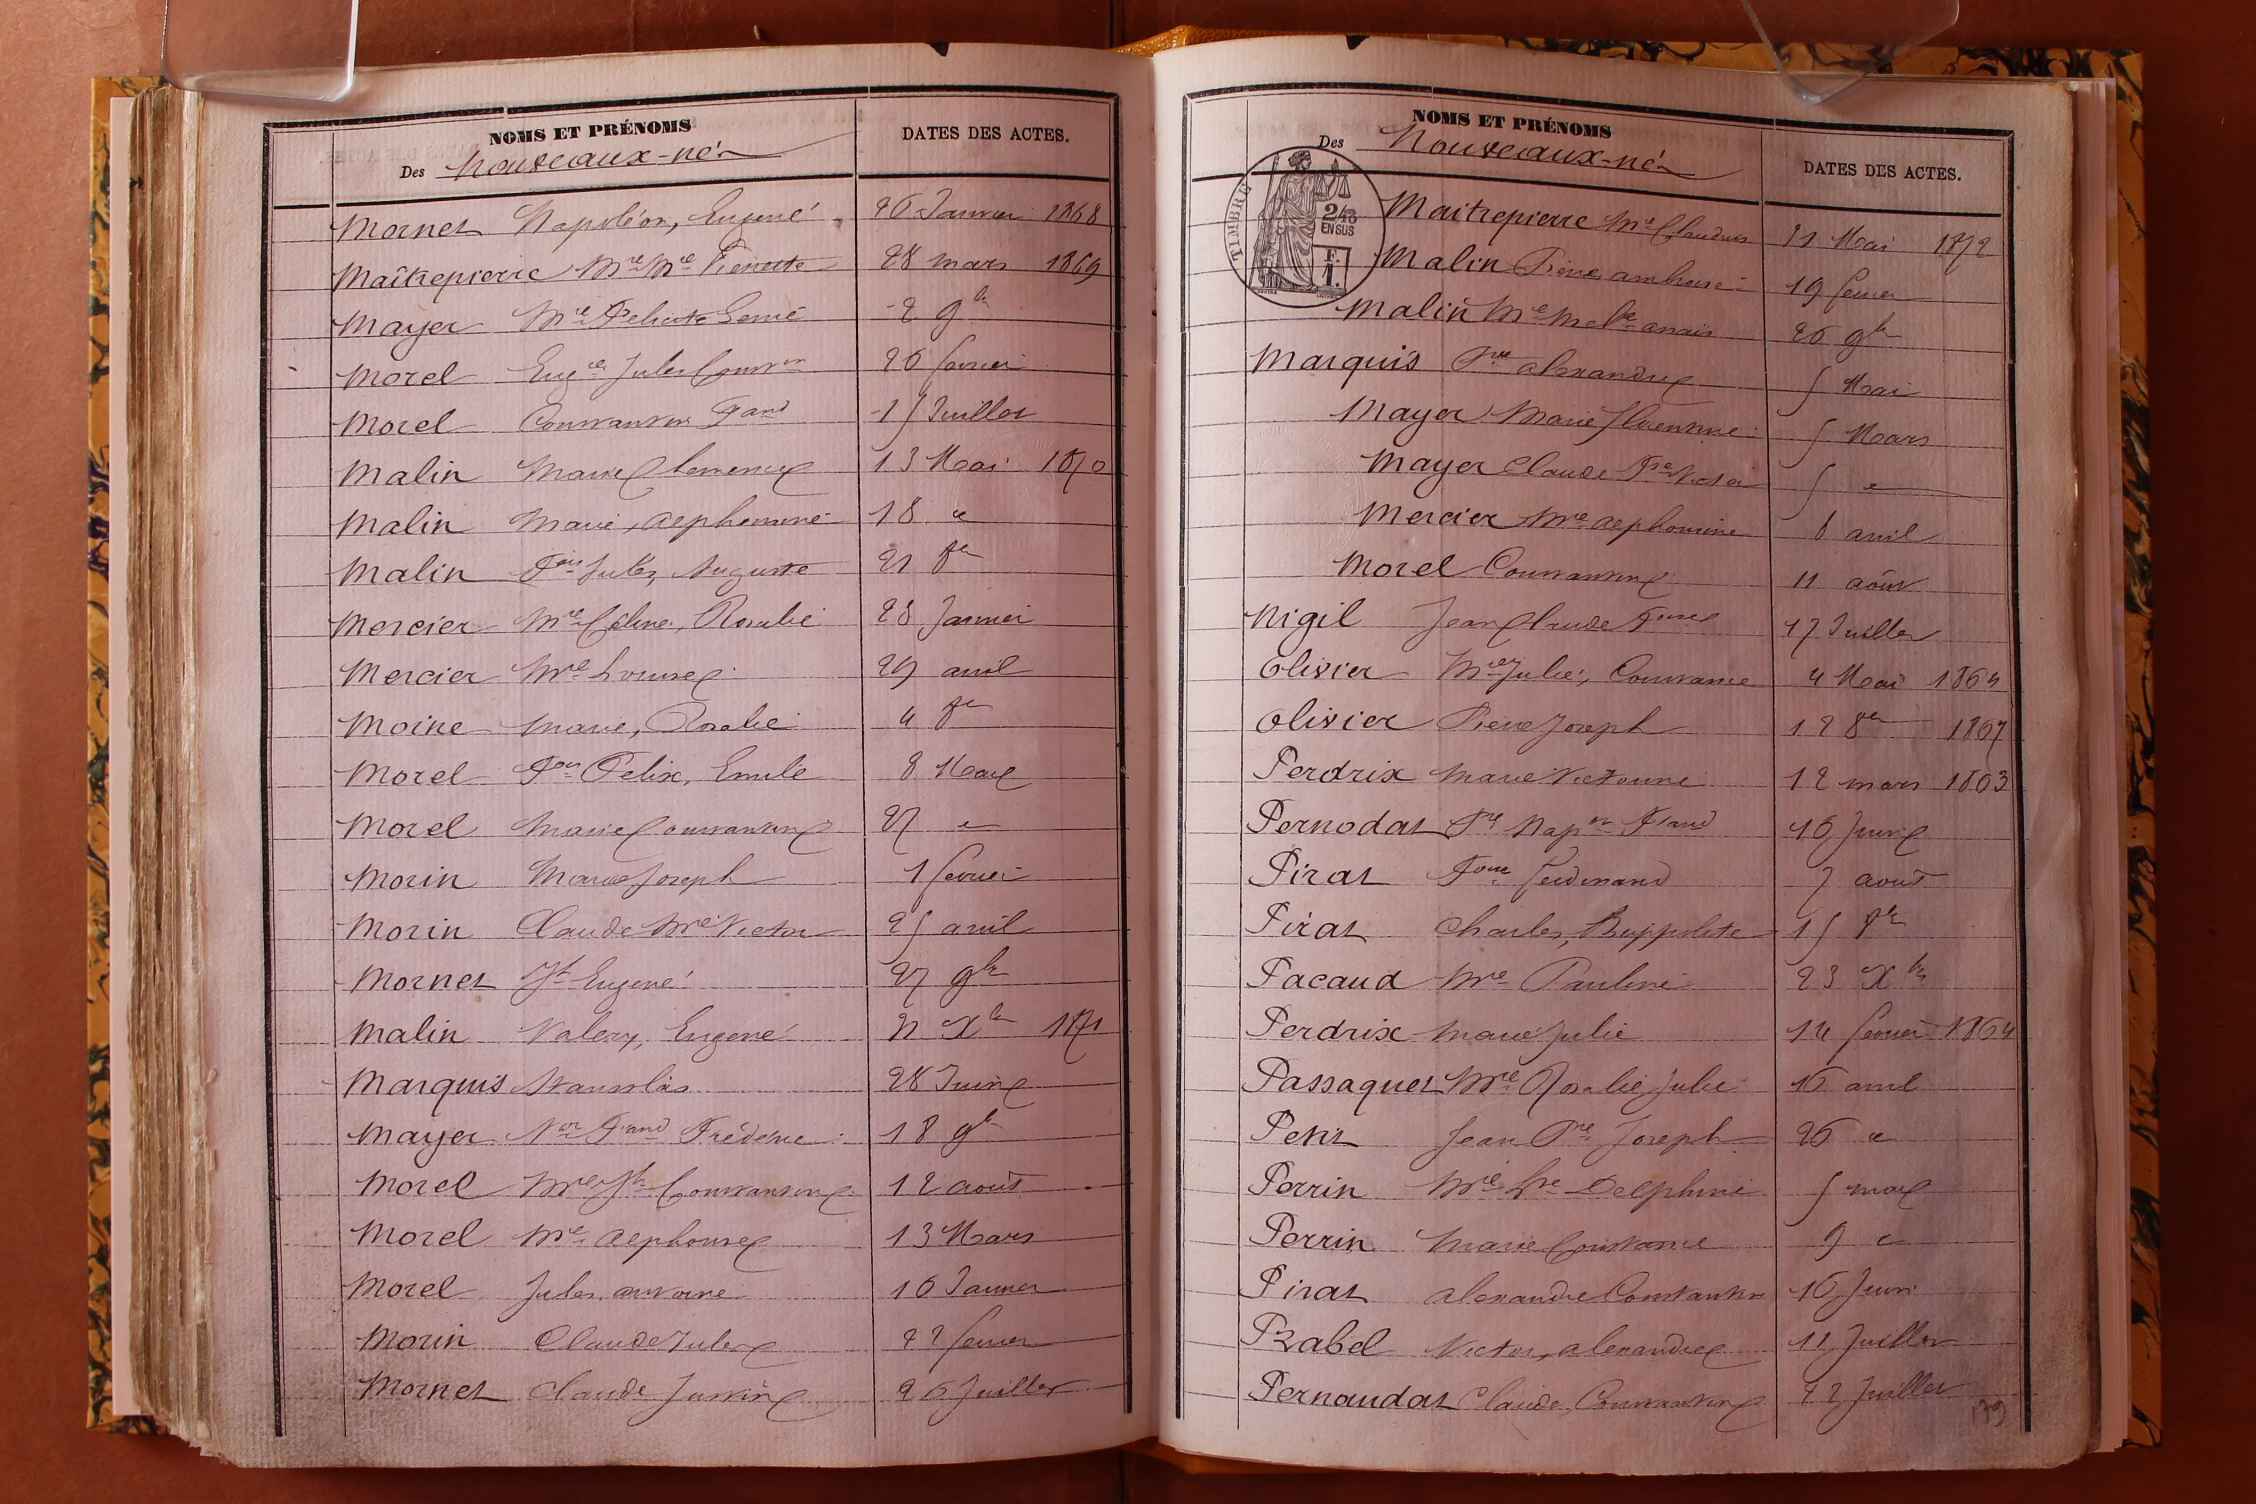 NOMS ET PRÉNOMS
Des Nouveaux-nés
DATES DES ACTES.
Mornet Napoléon, Eugène 26 Janvier 1868
Maîtrepierre Mie Mie Pierrette 28 mars 1869
Mayer Mie Félicité 2 9bre
Morel Eugne Jules Constin 26 février
Morel Constantin Fand 15 Juillet
Malin Marie Clemence 13 Mai 1870
Malin Marie, Alphonsine 18 "
Malin Fois Jules, Auguste 21 8re
Mercier Mie Céline, Rosalie 28 Janvier
Mercier Mie Louise 29 avril
Moine Marie, Rosalie 4 8re
Morel Fois Félix, Emile 8 Mars
Morel Marie Constantine 27 "
Morin Marie Joseph 1 février
Morin Claude Mie Victor 25 avril
Mornet Jh Eugène 27 9bre
Malin Valery, Eugène 21 Xbre 1871
Marquis Stanislas 28 Juin
Mayer Vor Fand Frédéric 18 9bre
Morel Mie Jh Constantine 12 août
Morel Mie Alphonse 13 Mars
Morel Jules, antoine 16 Janvier
Morin Claude Jules 22 février
Mornet Claude Justin 26 Juillet
NOMS ET PRÉNOMS
Des Nouveaux-nés
DATES DES ACTES.
TIMBRE
2/10
EN SUS
F.
1.
Maitrepierre Mie Claudius 21 Mai 1872
Malin Pierre ambroise 19 février
Malin Mie anaïs 26 9bre
Marquis Pre alexandre 5 Mai
Mayer Marie 5 Mars
Mayer Claude Victor 5 "
Mercier Mie alphonsine 8 avril
Morel Constantin 11 août
Nigil Jean Claude 17 Juillet
Olivier Mie Julie, Constance 4 Mai 1864
Olivier Pierre Joseph 12 8re 1867
Perdrix Marie Victorine 12 mars 1863
Pernodat Pre Napon Fand 16 Juin
Pirat Fois ferdinand 7 aout
Pirat Charles, Hippolite 15 8re
Pacaud Mie Pauline 23 Xbre
Perdrix Marie Julie 14 février 1864
Passaquet Mie Rosalie Julie 16 avril
Petit Jean Pre Joseph 26 "
Perrin Mie Delphine 5 mars
Perrin Marie Constance 9 "
Pirat alexandre Constantin 16 Juin
Prabel Victor, alexandre 11 Juillet
Pernaudat Claude, Constantin 22 Juillet
139